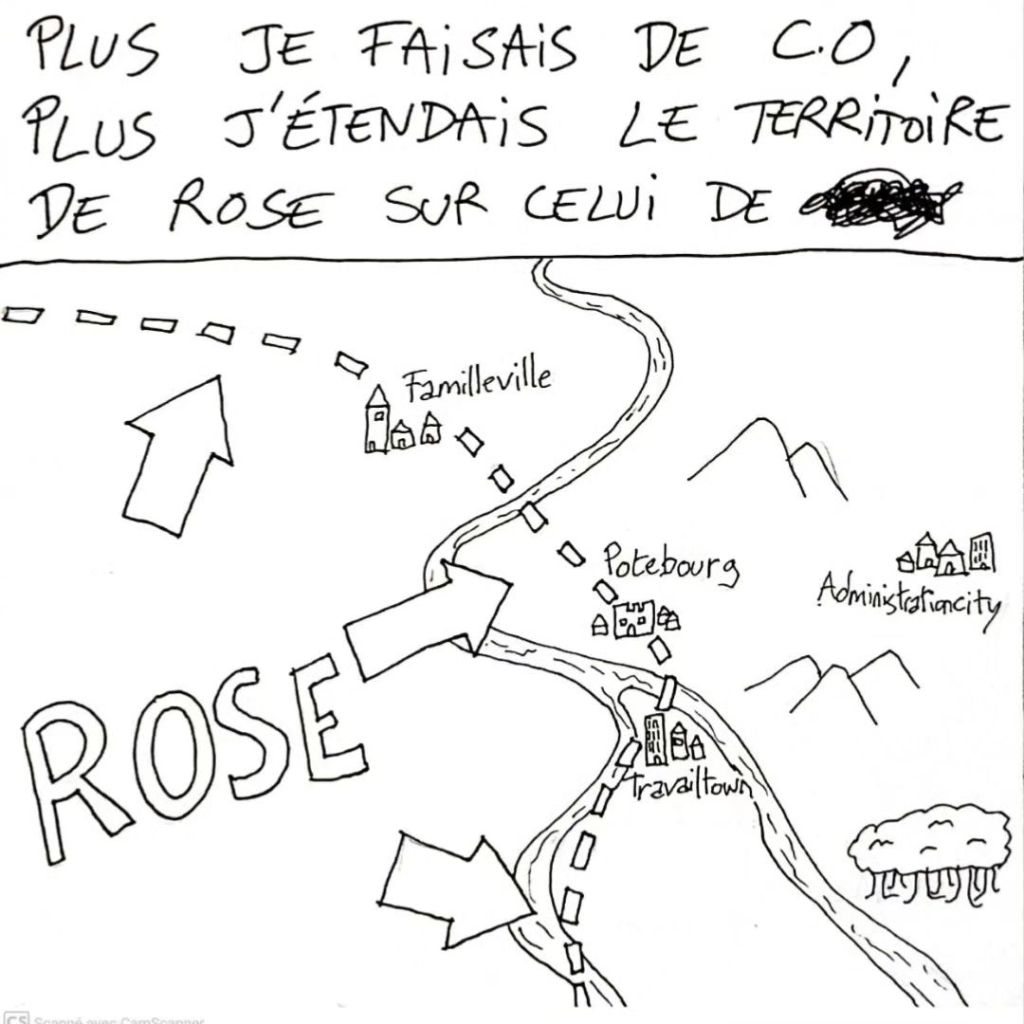 PLUS JE FAISAIS DE C.O,
PLUS J'ÉTENDAIS LE TERRITOIRE
DE ROSE SUR CELUI DE
Familleville
Potebourg
Administrationcity
ROSE
Travailtown
CS Scanné avec CamScanner